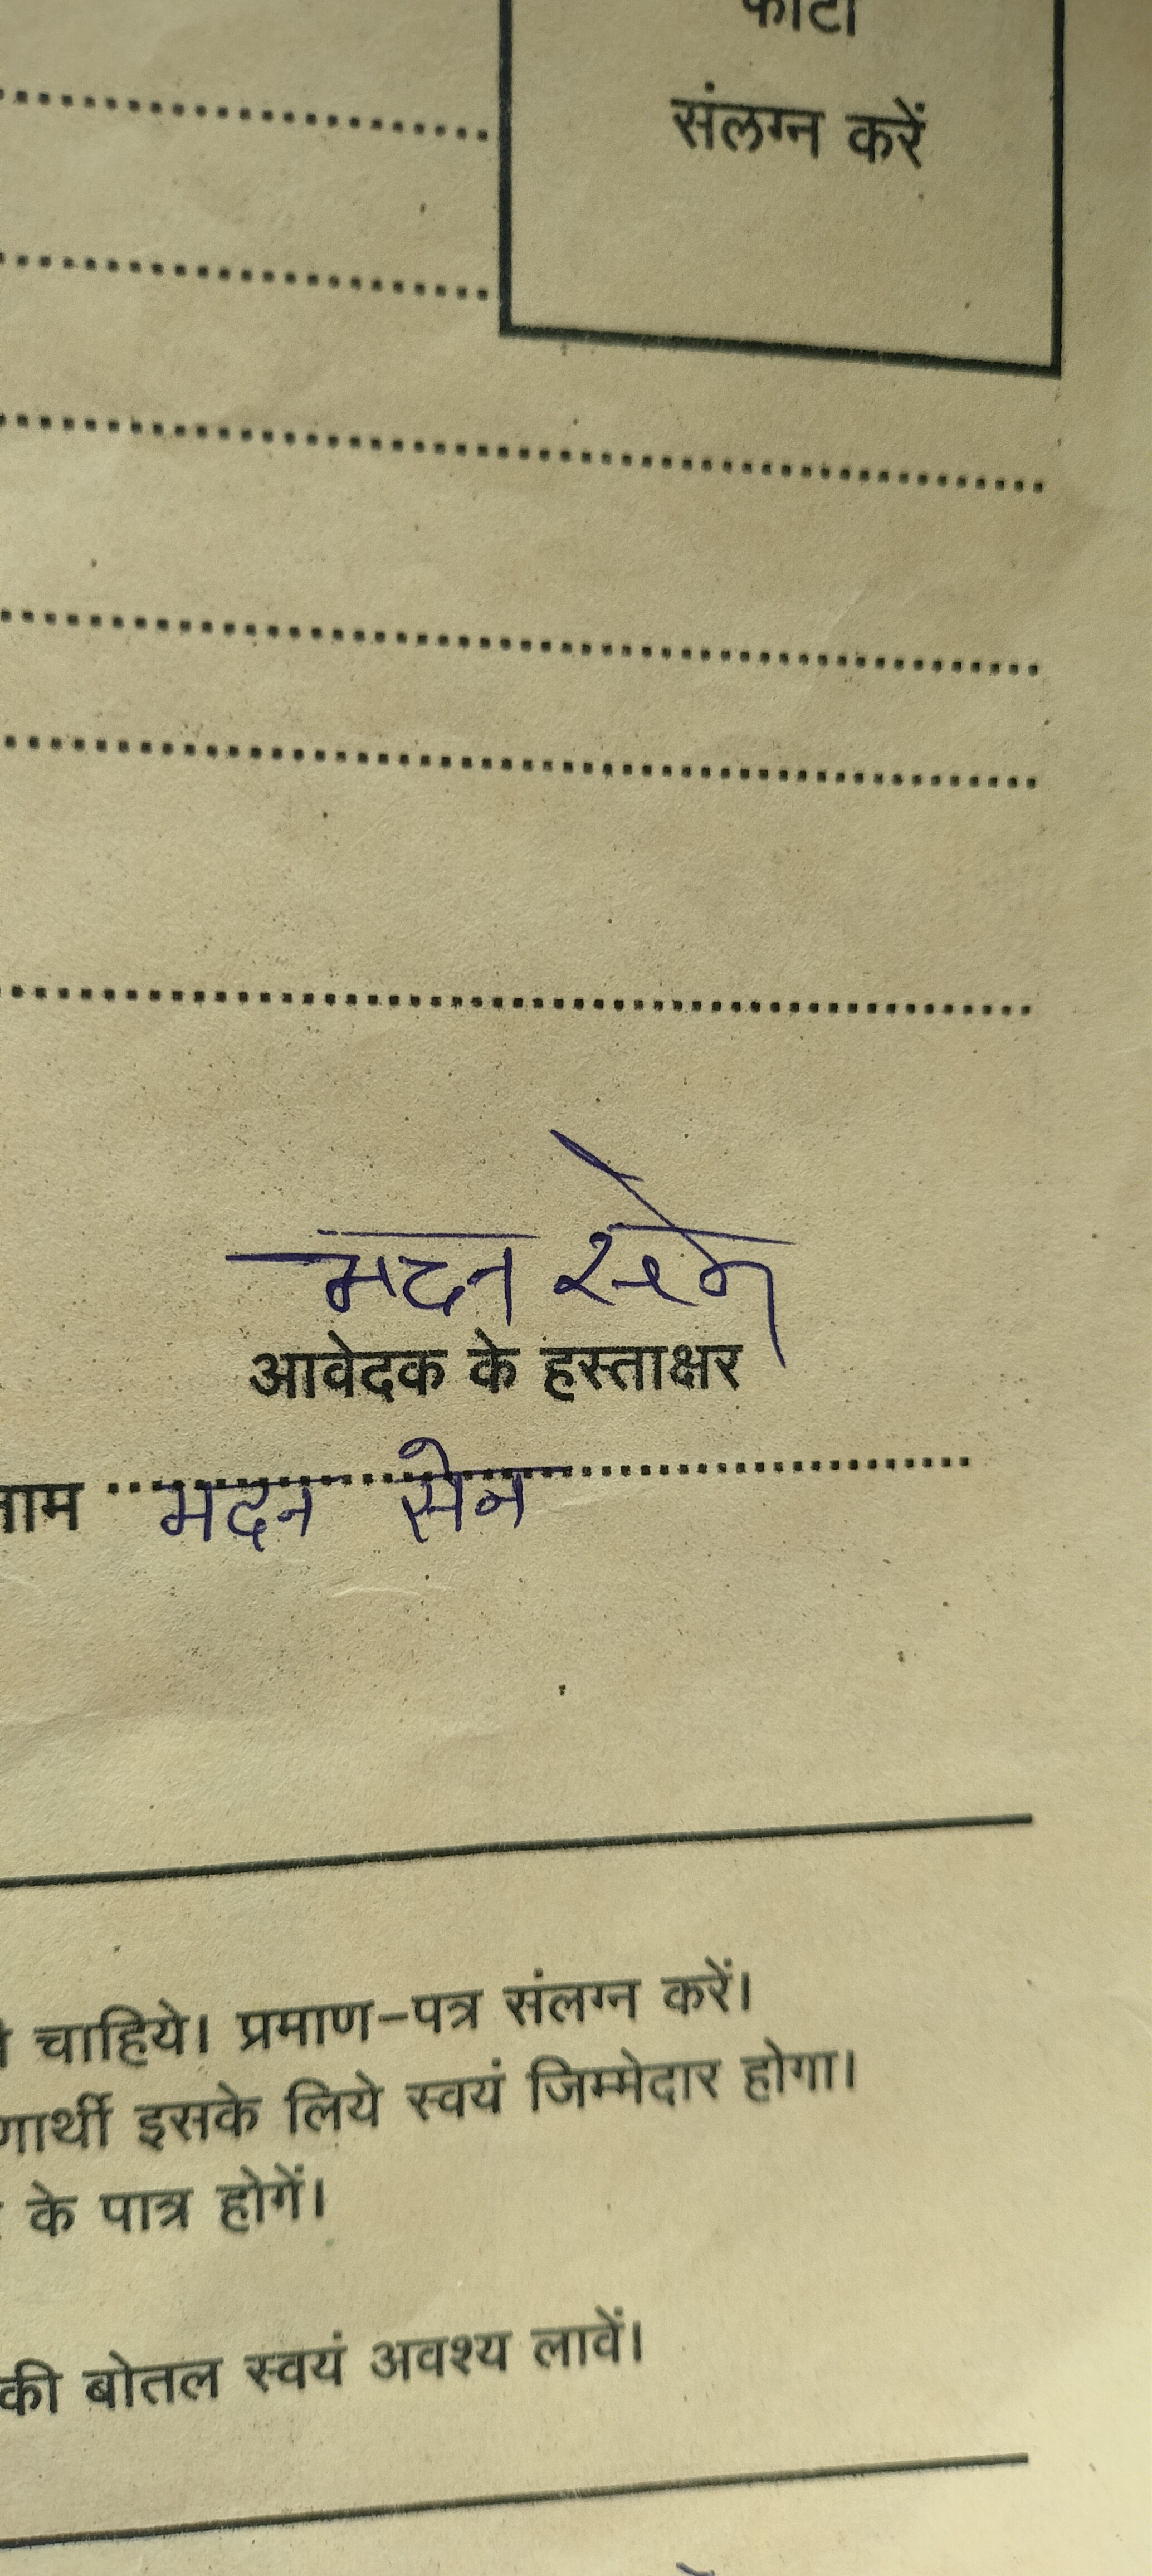 फोटो
संलग्न करें
मदन सेन
आवेदक के हस्ताक्षर
नाम मदन सेन
चाहिये। प्रमाण-पत्र संलग्न करें।
इसके लिये स्वयं जिम्मेदार होगा।
के पात्र होगें।
की बोतल स्वयं अवश्य लावें।